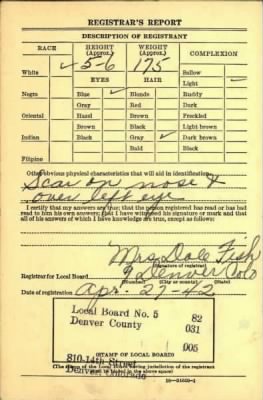 REGISTRAR'S REPORT
DESCRIPTION OF REGISTRANT
RACE HEIGHT (Approx.) WEIGHT (Approx.) COMPLEXION
White ✓ 5-6 175 Sallow
EYES HAIR Light ✓
Negro Blue ✓ Blonde Ruddy
Gray Red Dark
Oriental Hazel Brown Freckled
Brown Black Light brown
Indian Black Gray ✓ Dark brown
Bald Black
Filipino
Other obvious physical characteristics that will aid in identification
Scar on nose &
over left eye
I certify that my answers are true; that the person registered has read or has had
read to him his own answers; that I have witnessed his signature or mark and that
all of his answers of which I have knowledge are true, except as follows:
Mrs. Dale Fish
(Signature of registrar)
Registrar for Local Board 9 Denver Colo
(Number) (City or county) (State)
Date of registration Apr 27-42
Local Board No. 5 82
Denver County 031
005
810-14th Street
Denver, Colorado
(STAMP OF LOCAL BOARD)
(The stamp of the Local Board having jurisdiction of the registrant
shall be placed in the above space)